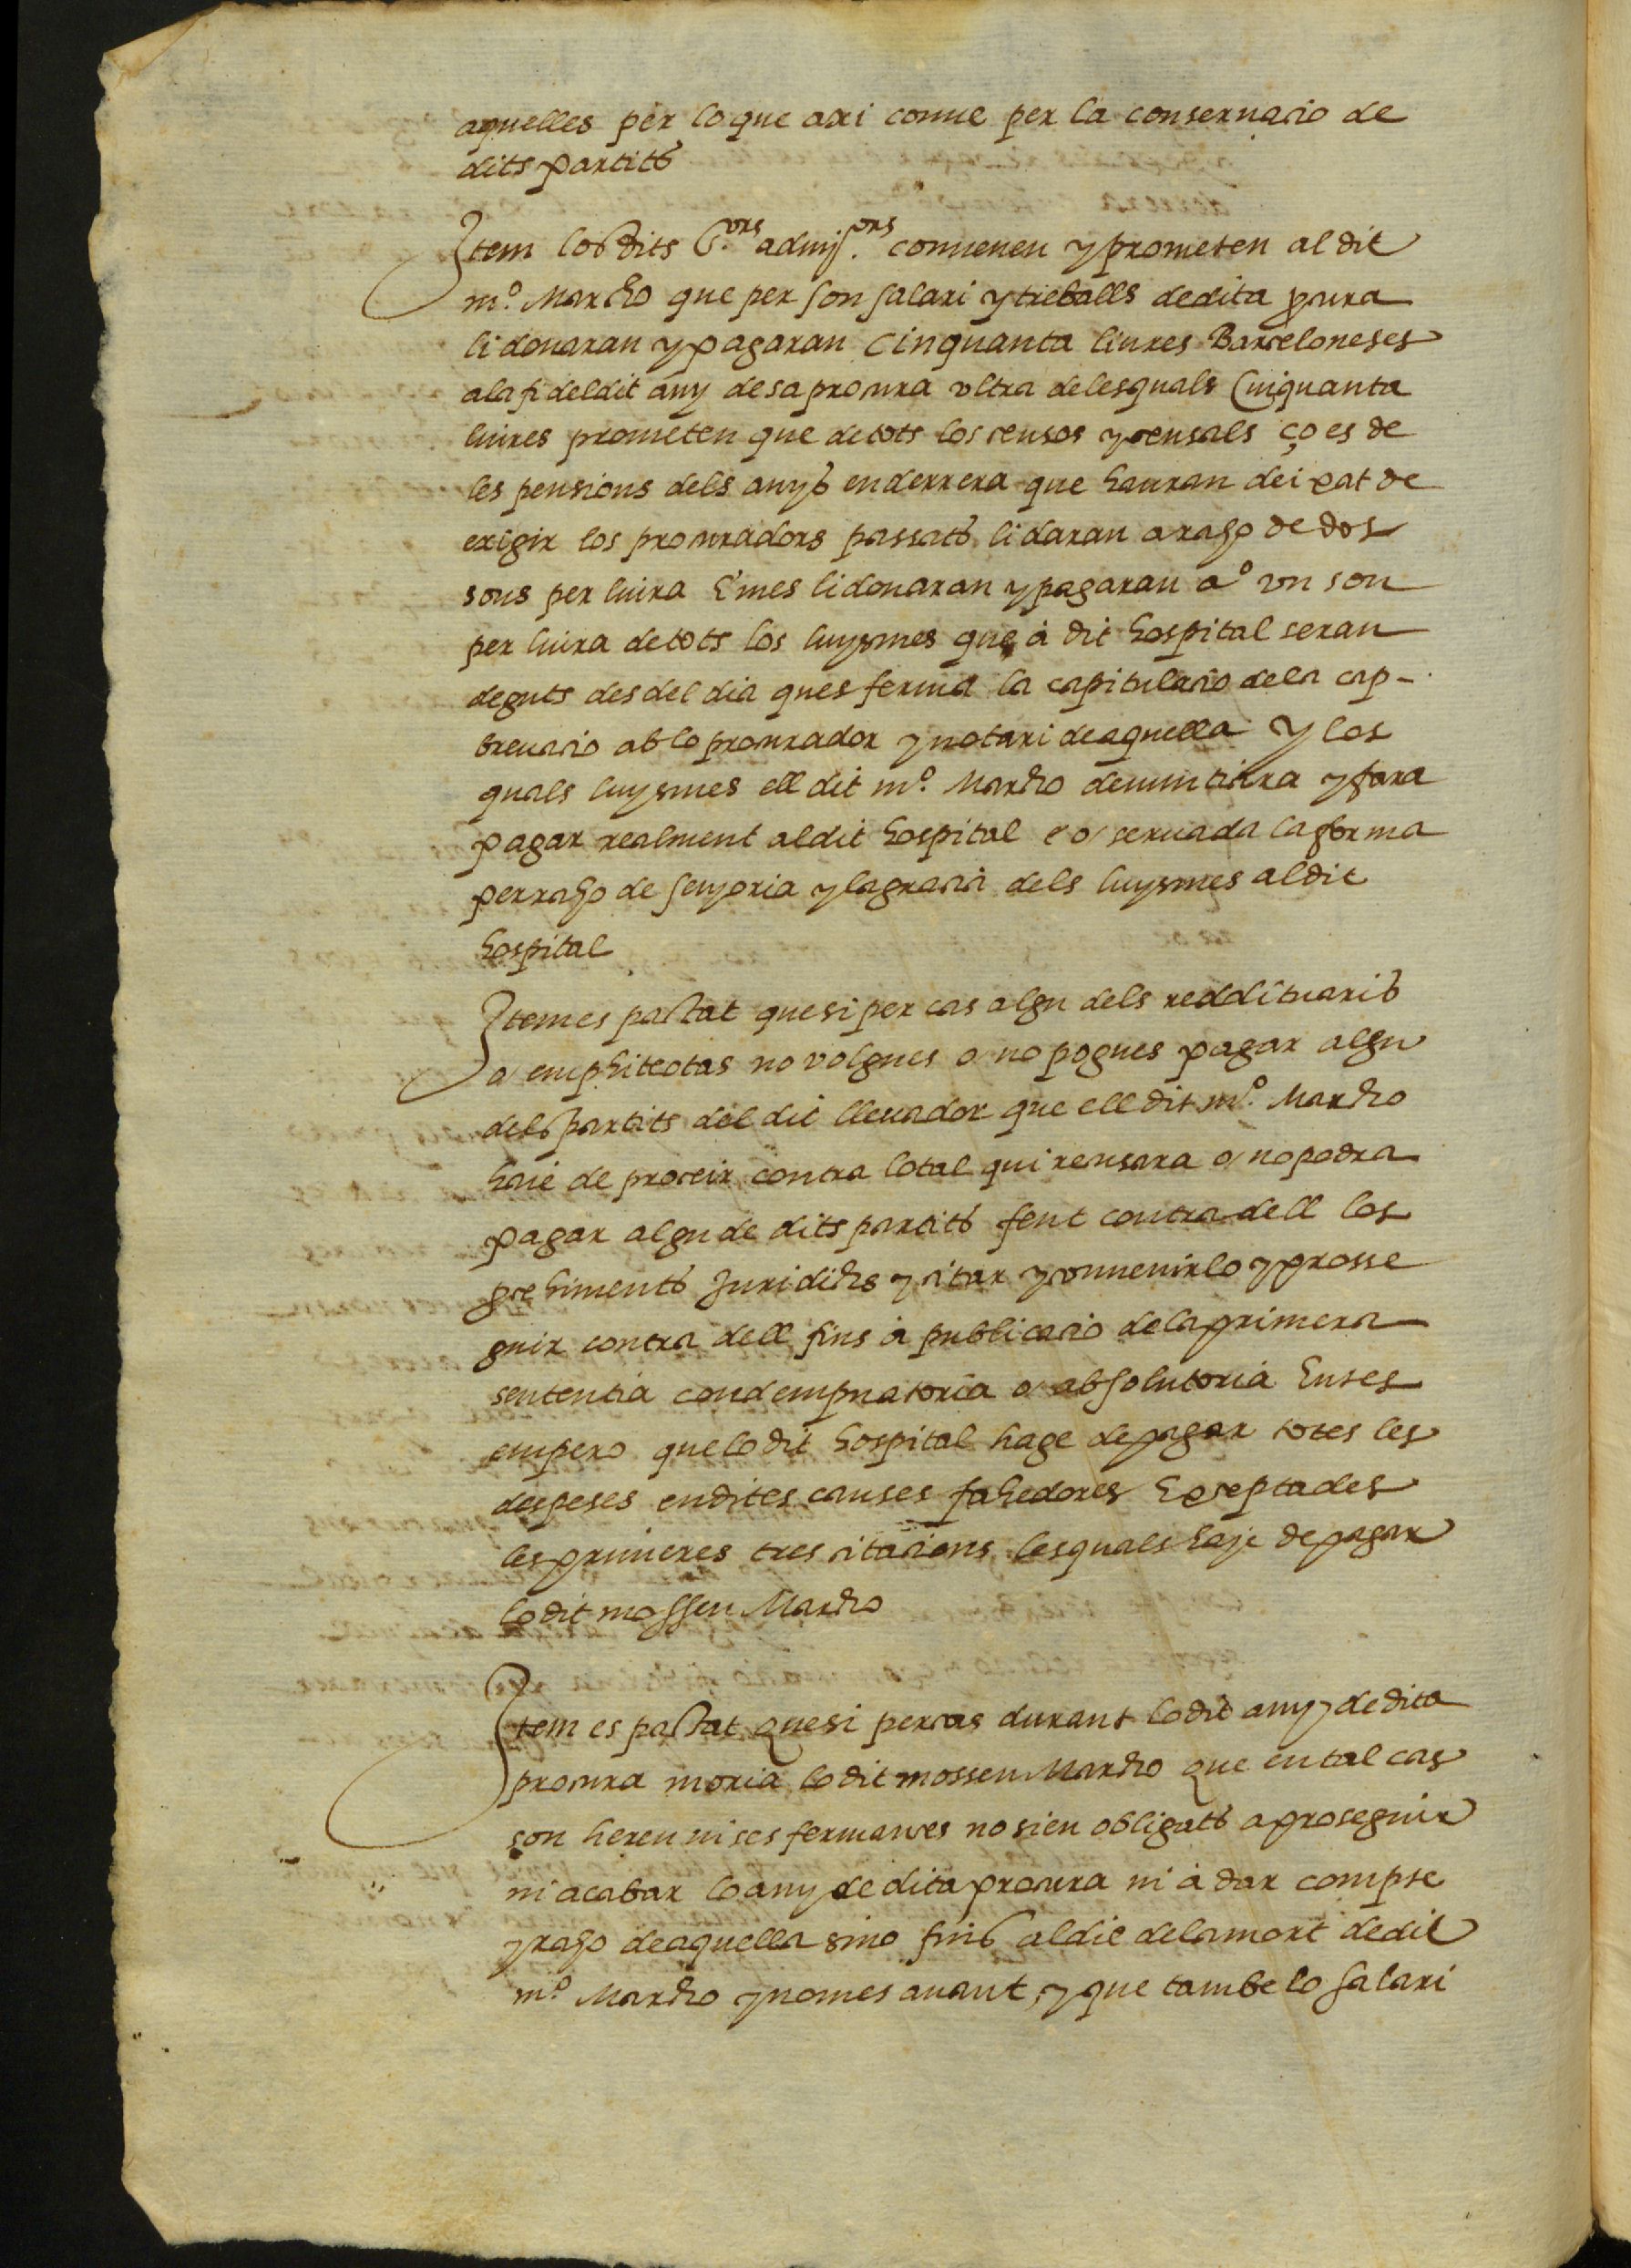 aquelles per lo que axi conue per la conseruacio de
dits partits
Item los dits S.ors admj.ors conuenen y prometen al dit
m.º Marcho que per son salari y treballs de dita pcura
li donaran y pagaran Cinquanta liures Barceloneses
a la fi del dit any de sa procura vltra de les quals Cinquanta
liures prometen que de tots los censos y censals ço es de
les pensions dels anys enderrera que hauran deixat de
exigir los procuradors passats li daran a raho de dos
sous per liura E mes li donaran y pagaran a º vn sou
per liura de tots los luysmes que à dit hospital seran
deguts des del dia ques ferma la capitulacio de la cap-
breuacio ab lo procurador y notari de aquella y los
quals luysmes ell dit m.º Marcho denuntiara y fara
pagar realment al dit hospital e o/ seruada la forma
per raho de senyoria y la gracia dels luysmes al dit
hospital
Item es pactat que si per cas algu dels reddituaris
o/ emphiteotas no volgues o/ no pogues pagar algu
dels partits del dit lleuador que ell dit m.º Marcho
haie de proceir contra lo tal qui reusara o/ no podra
pagar algu de dits partits fent contra dell los
prehiments Juridichs y citar y conuenirlo y prosse
guir contra dell fins à publicacio de la primera
sententia condempnatoria o/ absolutoria Entes
empero que lo dit hospital hage de pagar totes les
despeses en dites causes fahedores Exceptades
les primeres tres citacions les quals haje de pagar
lo dit mossen Marcho
Item es pactat que si per cas durant lo dit any de dita
procura moria lo dit mossen Marcho que en tal cas
son hereu ni ses fermances no sien obligats a proseguir
ni acabar lo any de dita procura ni à dar compte
y raho de aquella sino fins al die de la mort de dit
m.º Marcho y no mes auant, y que tambe lo salari